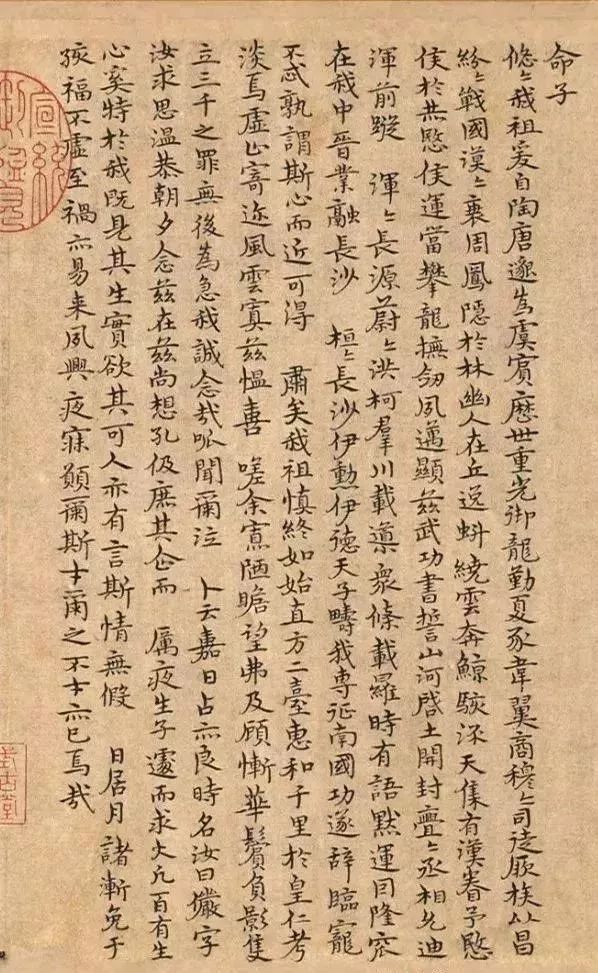 命子
悠〻我祖爰自陶唐邈爲虞賓歷世重光御龍勤夏豕韋翼商穆〻司徒厥族以昌
紛〻戰國漠〻衰周鳳隱於林幽人在丘逸虯繞雲奔鯨駭流天集有漢眷予愍
侯於赫愍侯運當攀龍撫劒夙邁顯茲武功書誓山河啓土開封亹〻丞相允迪
渾前蹤 渾〻長源蔚〻洪柯羣川載導衆條載羅時有語默運因隆窊
在我中晉業融長沙 桓〻長沙伊勳伊德天子疇我專征南國功遂辭臨寵
不忒孰謂斯心而近可得 肅矣我祖慎終如始直方二臺惠和千里於皇仁考
淡焉虛止寄迹風雲寘茲慍喜 嗟余寡陋瞻望弗及顧慚華鬢負影隻
立三千之罪無後為急我誠念哉呱聞爾泣 卜云嘉日占亦良時名汝曰儼字
汝求思溫恭朝夕念茲在茲尚想孔伋庶其企而 厲夜生子遽而求火凡百有生
心奚特於我既見其生實欲其可人亦有言斯情無假 日居月諸漸免于
孩福不虛至禍亦易来夙興夜寐願爾斯才爾之不才亦已焉哉
宣統
式古堂